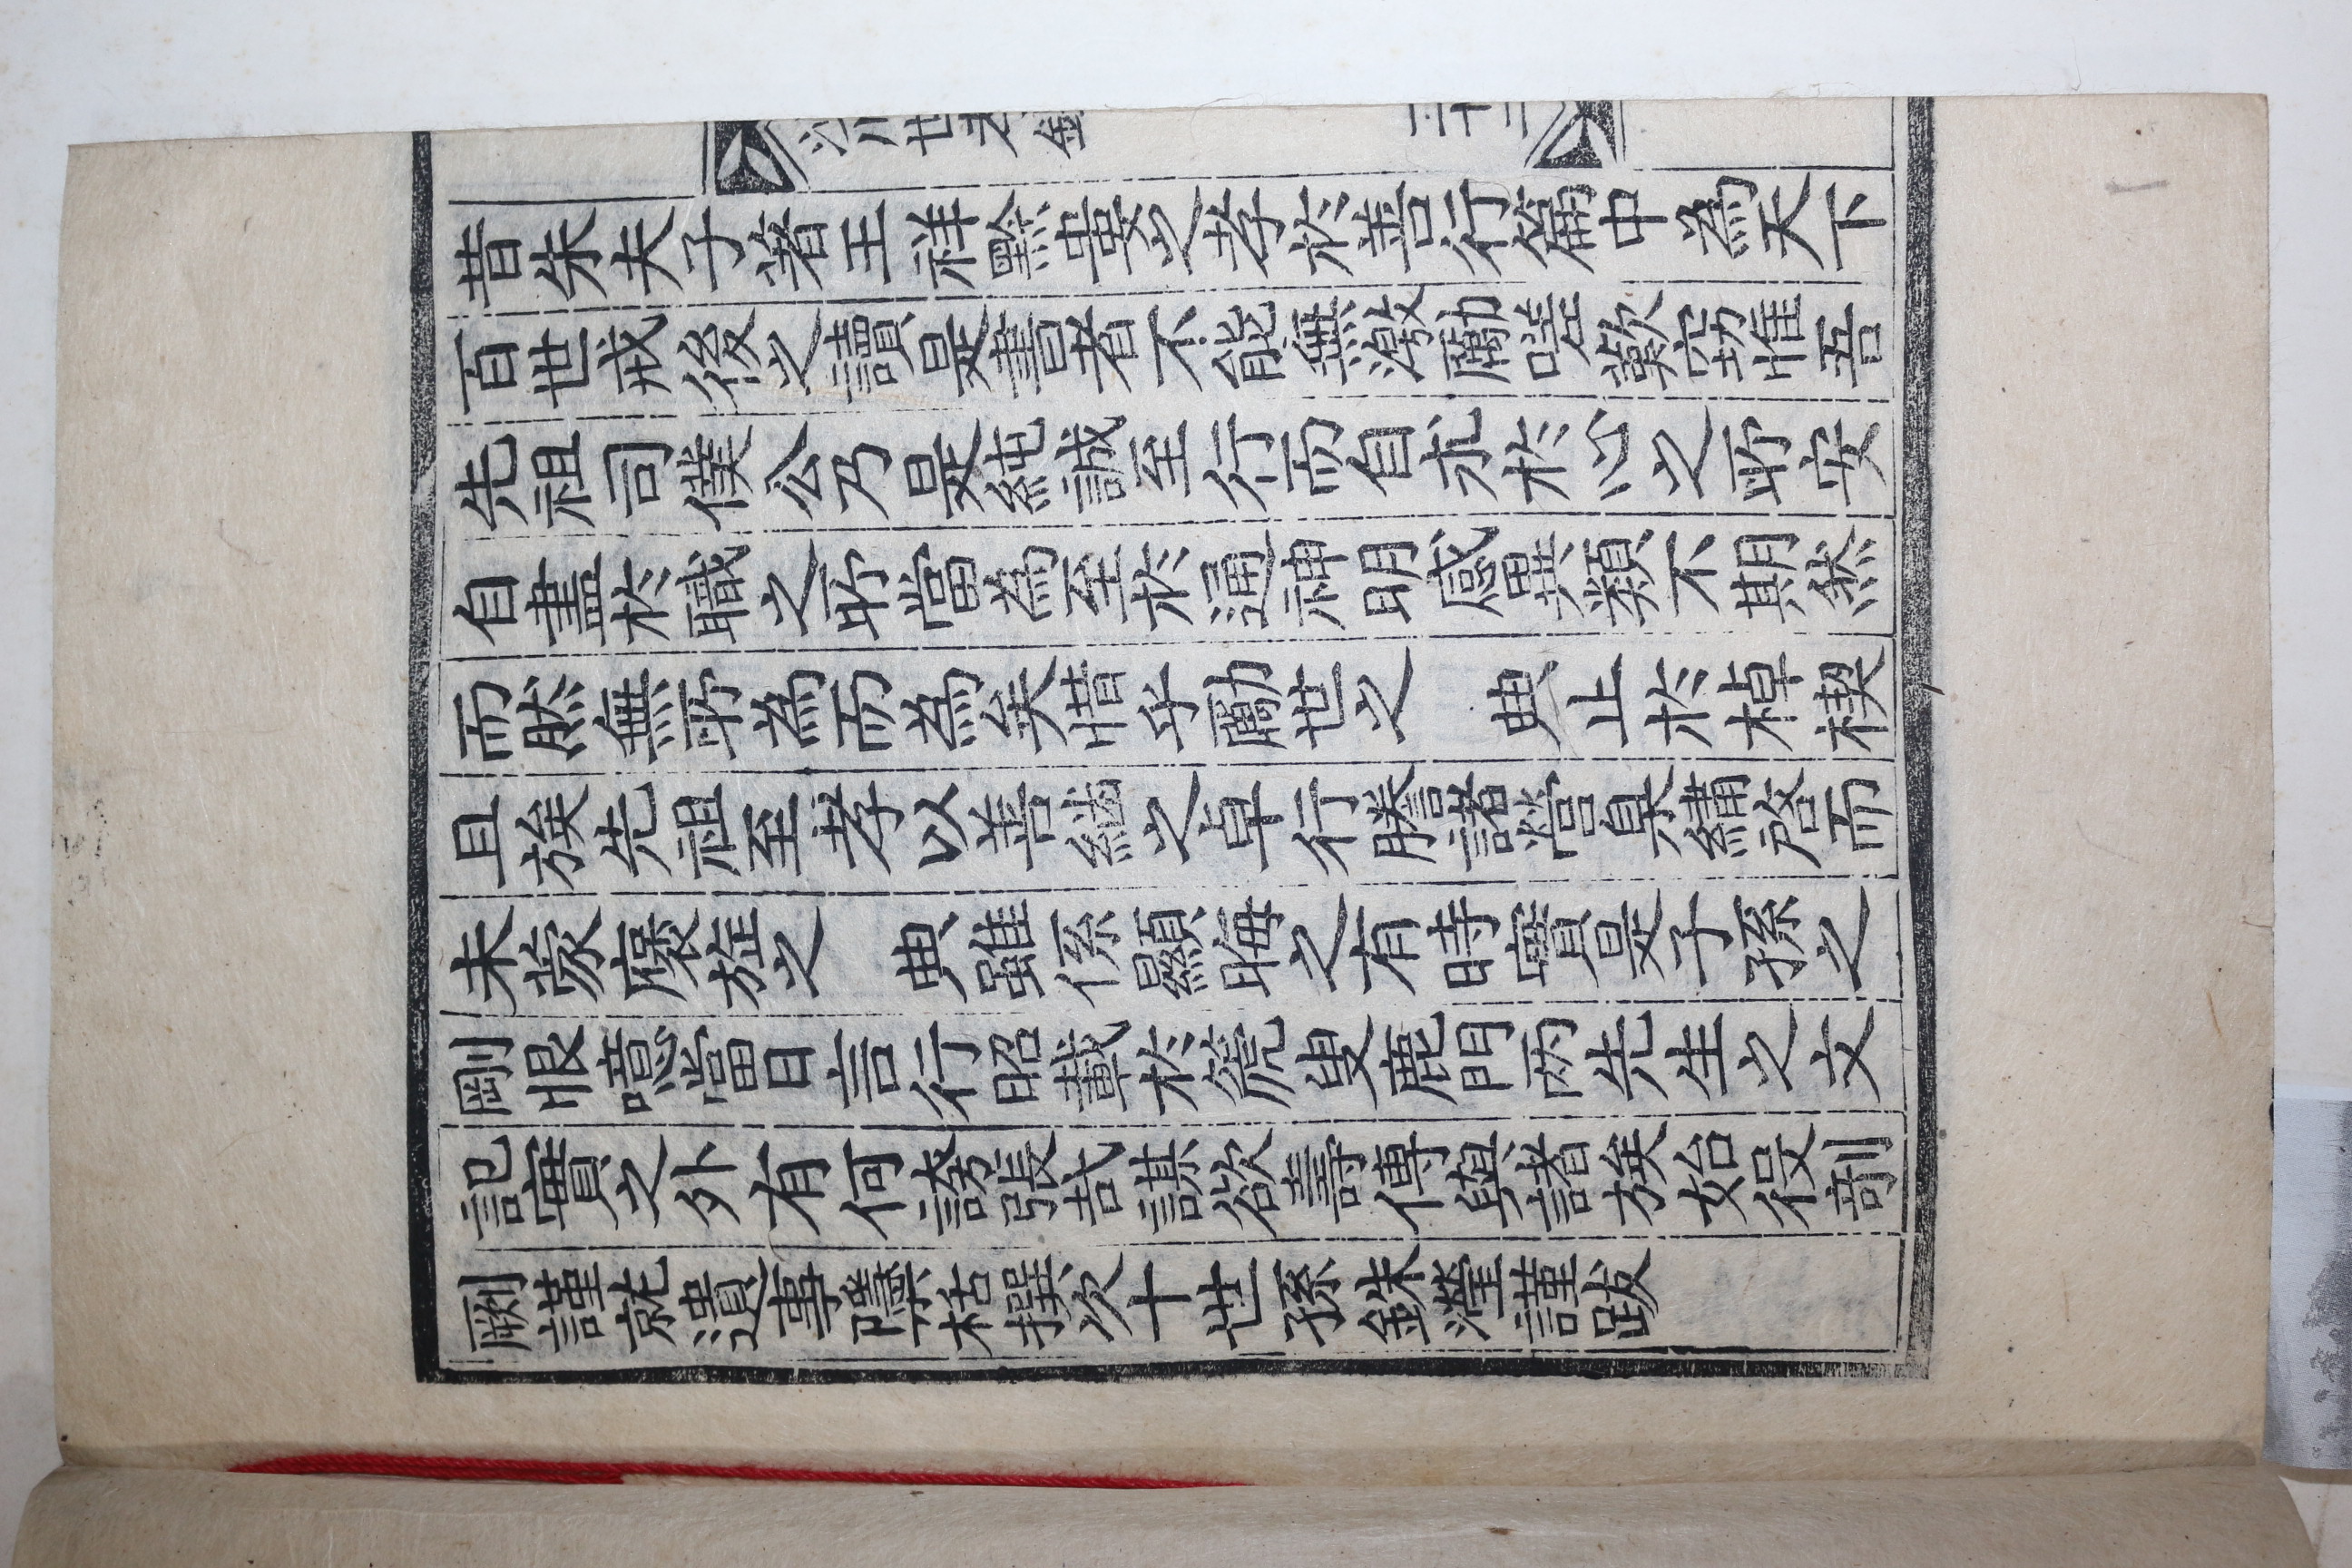 昔朱夫子著王祥黔婁之孝於善行篇中為天下
百世戒後之讀是書者不能無激勵嗟歎窃惟吾
先祖司僕公乃是純誠至行而自求於心之所安
自盡於職之所當為至於通神明感異類不期然
而然無所為而為矣惜乎勵世之 典止於棹楔
且族先祖至孝以善繼之卓行牒諸營臬繡啓而
未蒙褒旌之 典雖係顯晦之有時實是子孫之
剛恨噫當日言行昭載於篪叟鹿門兩先生之文
記實之外有何誇張哉謀欲壽傳與諸族始役剞
劂謹就遺事隱栝撰次十世孫銖瀅謹跋